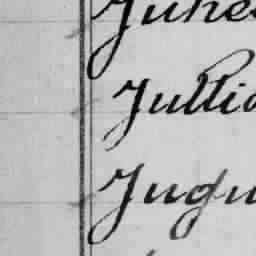 Juhe
Jullia
Jugu